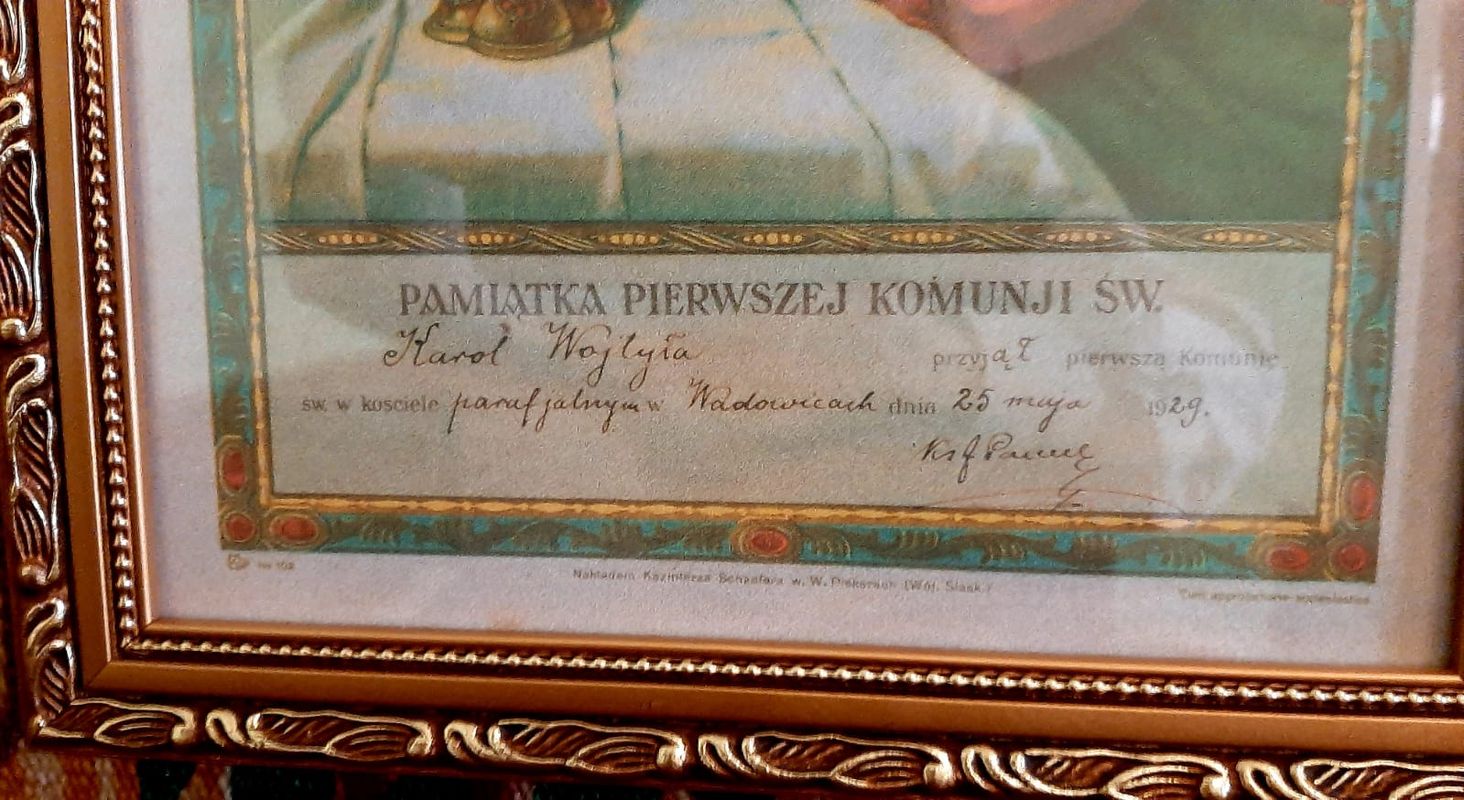 PAMIĄTKA PIERWSZEJ KOMUNJI ŚW.
Karol Wojtyła przyjął pierwszą Komunię
św. w kościele parafjalnym w Wadowicach dnia 25 maja 1929.
Nakładem Kazimierza Schaefera w. W. Piekarach (Woj. Śląsk.)
Cum approbatione